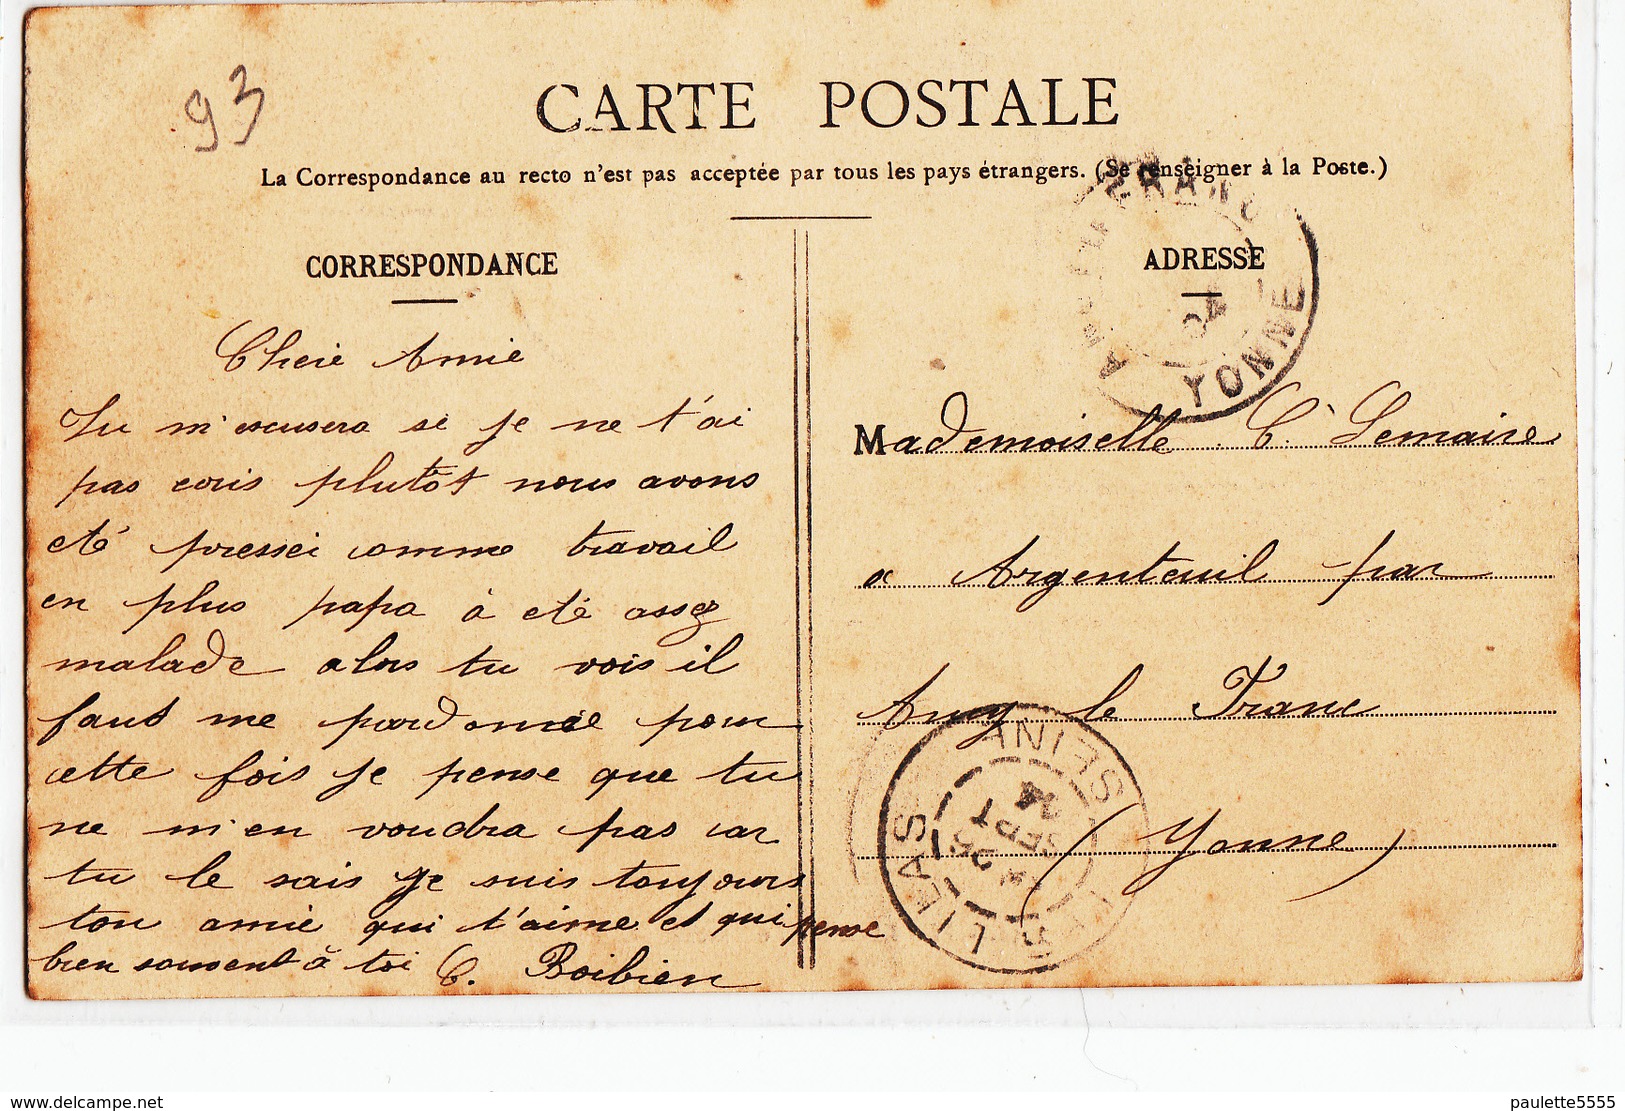 93
CARTE POSTALE
La Correspondance au recto n'est pas acceptée par tous les pays étrangers. (Se renseigner à la Poste.)
CORRESPONDANCE
Cheie Amie
Tu m'excusera si je ne t'ai
pas ecris plutôt nous avons
eté pressei comme travail
en plus papa à eté assez
malade alors tu vois il
faut me pardonné pour
cette fois je pense que tu
ne m'en voudra pas car
tu le sais je suis toujours
ton amie qui t'aime et qui pense
bien souvent à toi C. Boibien
ADRESSE
YONNE
04
Mademoiselle C. Lemaire
a Argenteuil par
Ancy le Franc
(Yonne)
LILAS
SEPT
04
delcampe.net
paulette5555